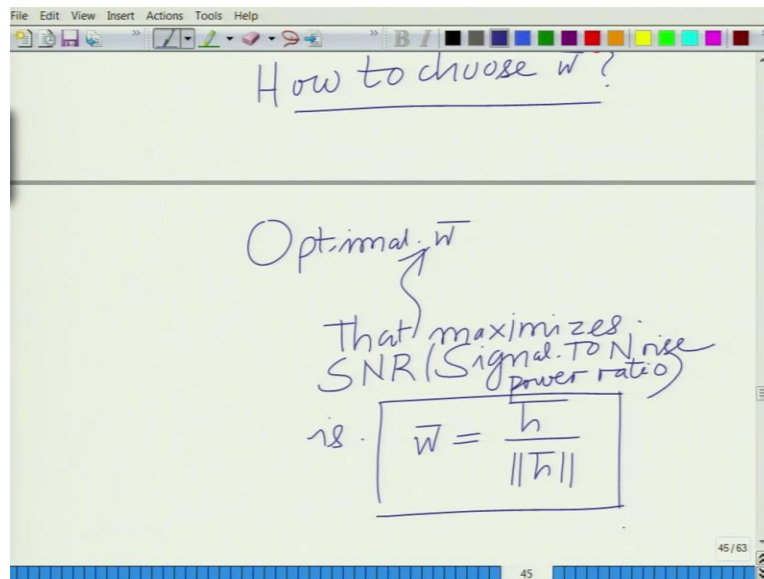 File Edit View Insert Actions Tools Help
B I
How to choose w̅?
Optimal w̅
That maximizes
SNR (Signal To Noise
power ratio)
is. w̅ = h̅ / ||h̅||
45/63
45